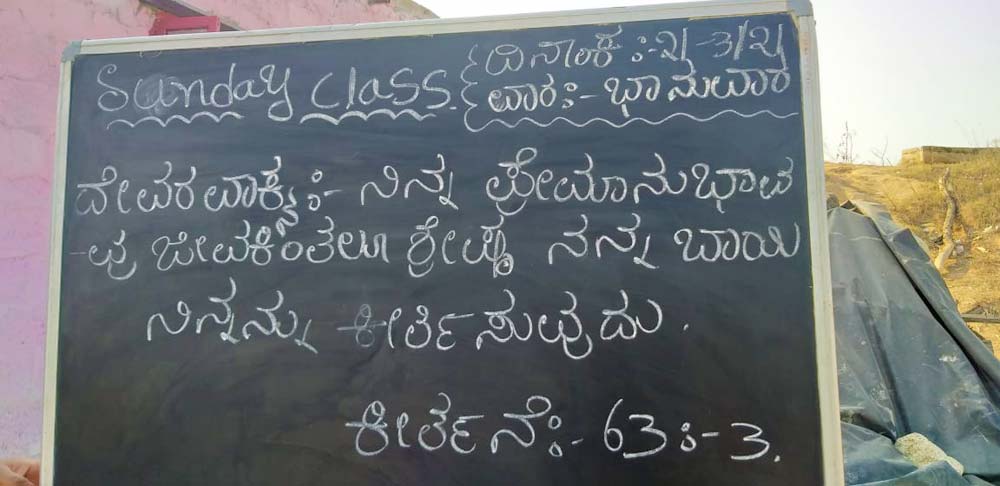 Sunday Class. ದಿನಾಂಕ :- 21-3/21
ವಾರ :- ಭಾನುವಾರ
ದೇವರ ವಾಕ್ಯ :- ನಿನ್ನ ಪ್ರೇಮಾನುಭಾವ
-ವು ಜೀವಕ್ಕಿಂತಲೂ ಶ್ರೇಷ್ಠ ನನ್ನ ಬಾಯಿ
ನಿನ್ನನ್ನು ಕೀರ್ತಿಸುವುದು .
ಕೀರ್ತನೆ :- 63 :- 3.